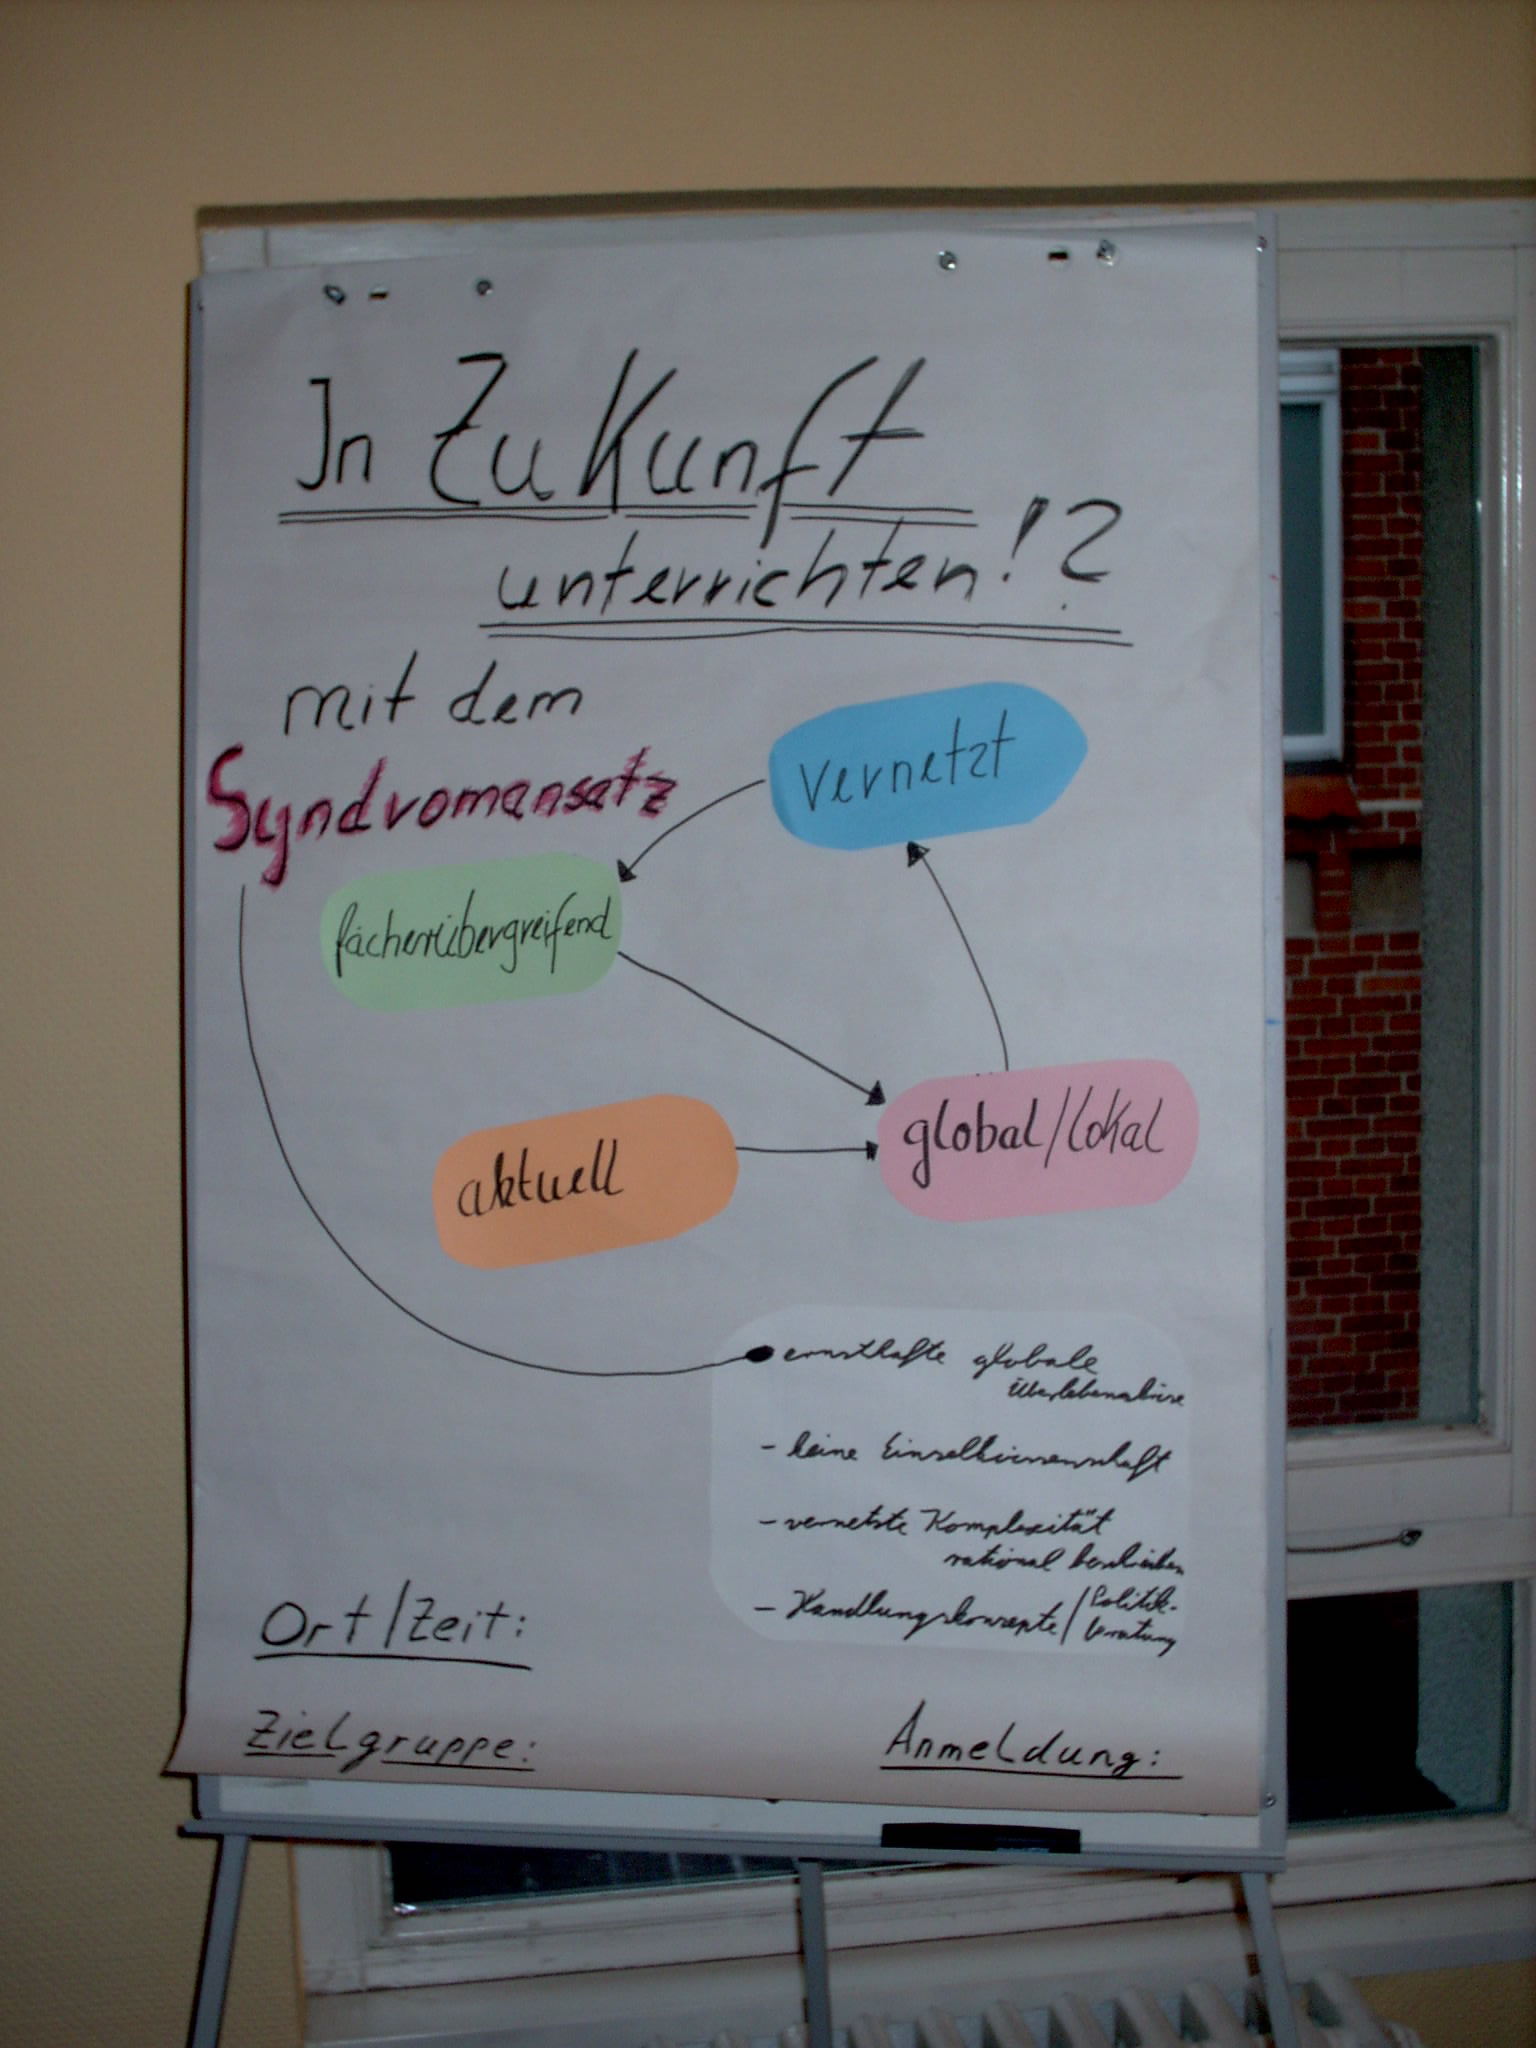 In Zukunft
unterrichten!?
mit dem
Syndromansatz
vernetzt
fächerübergreifend
global/lokal
aktuell
ernsthafte globale
Überlebenskrise
- keine Einzelwissenschaft
- vernetzte Komplexität
rational beschreiben
- Handlungskonzepte/Politik-
beratung
Ort/Zeit:
Zielgruppe:
Anmeldung: